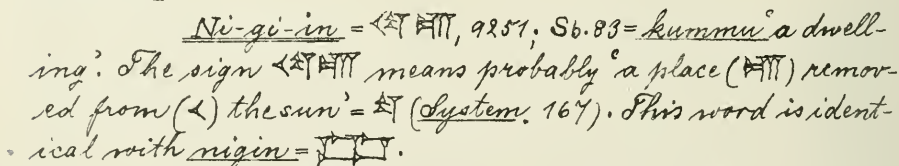 Ni-gi-in = 𒌋𒌓𒆤, 9251; Sb. 83 = kummu ‘a dwell-
ing’. The sign means probably ‘a place ( ) remov-
ed from (𒌋) the sun’ = (System, 167). This word is ident-
ical with nigin = .